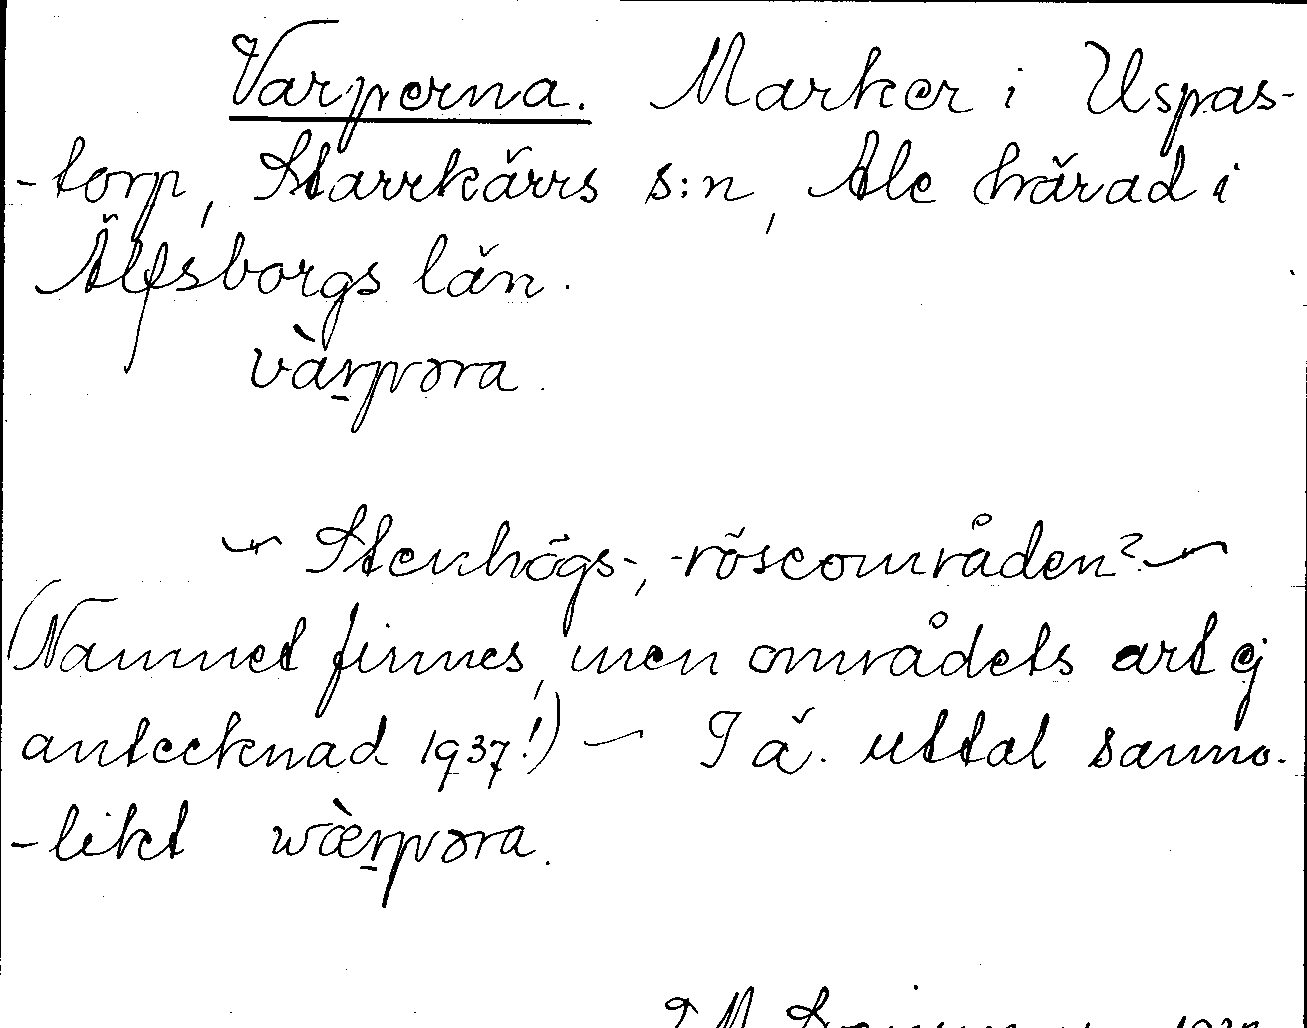 Varperna. Marker i Uspas-
-torp, Starrkärrs s:n, Ale härad i
Älfsborgs län.
vàrpəra.
Stenhögs-, -röseområden?
(Namnet finnes, men områdets art ej
antecknad 1937!) — I ä. uttal sanno-
-likt wæ̀rpəra.